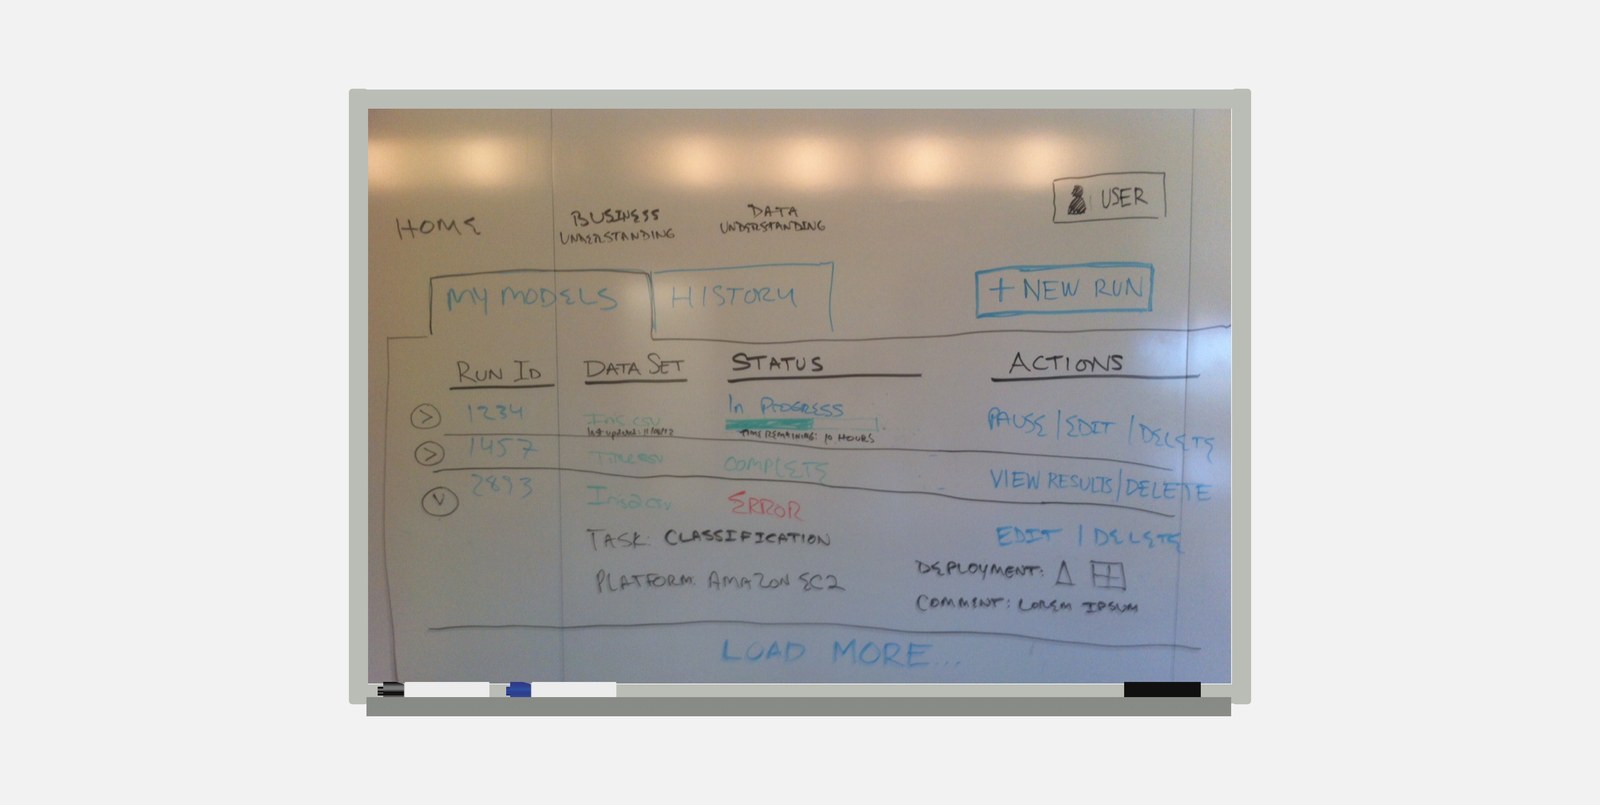 HOME
BUSINESS
UNDERSTANDING
DATA
UNDERSTANDING
USER
MY MODELS
HISTORY
+ NEW RUN
RUN ID
DATA SET
STATUS
ACTIONS
> 1234
In PROGRESS
TIME REMAINING: 10 HOURS
PAUSE / EDIT / DELETE
> 1457
COMPLETE
VIEW RESULTS / DELETE
V
ERROR
EDIT / DELETE
TASK: CLASSIFICATION
PLATFORM: AMAZON EC2
DEPLOYMENT:
COMMENT: LOREM IPSUM
LOAD MORE...